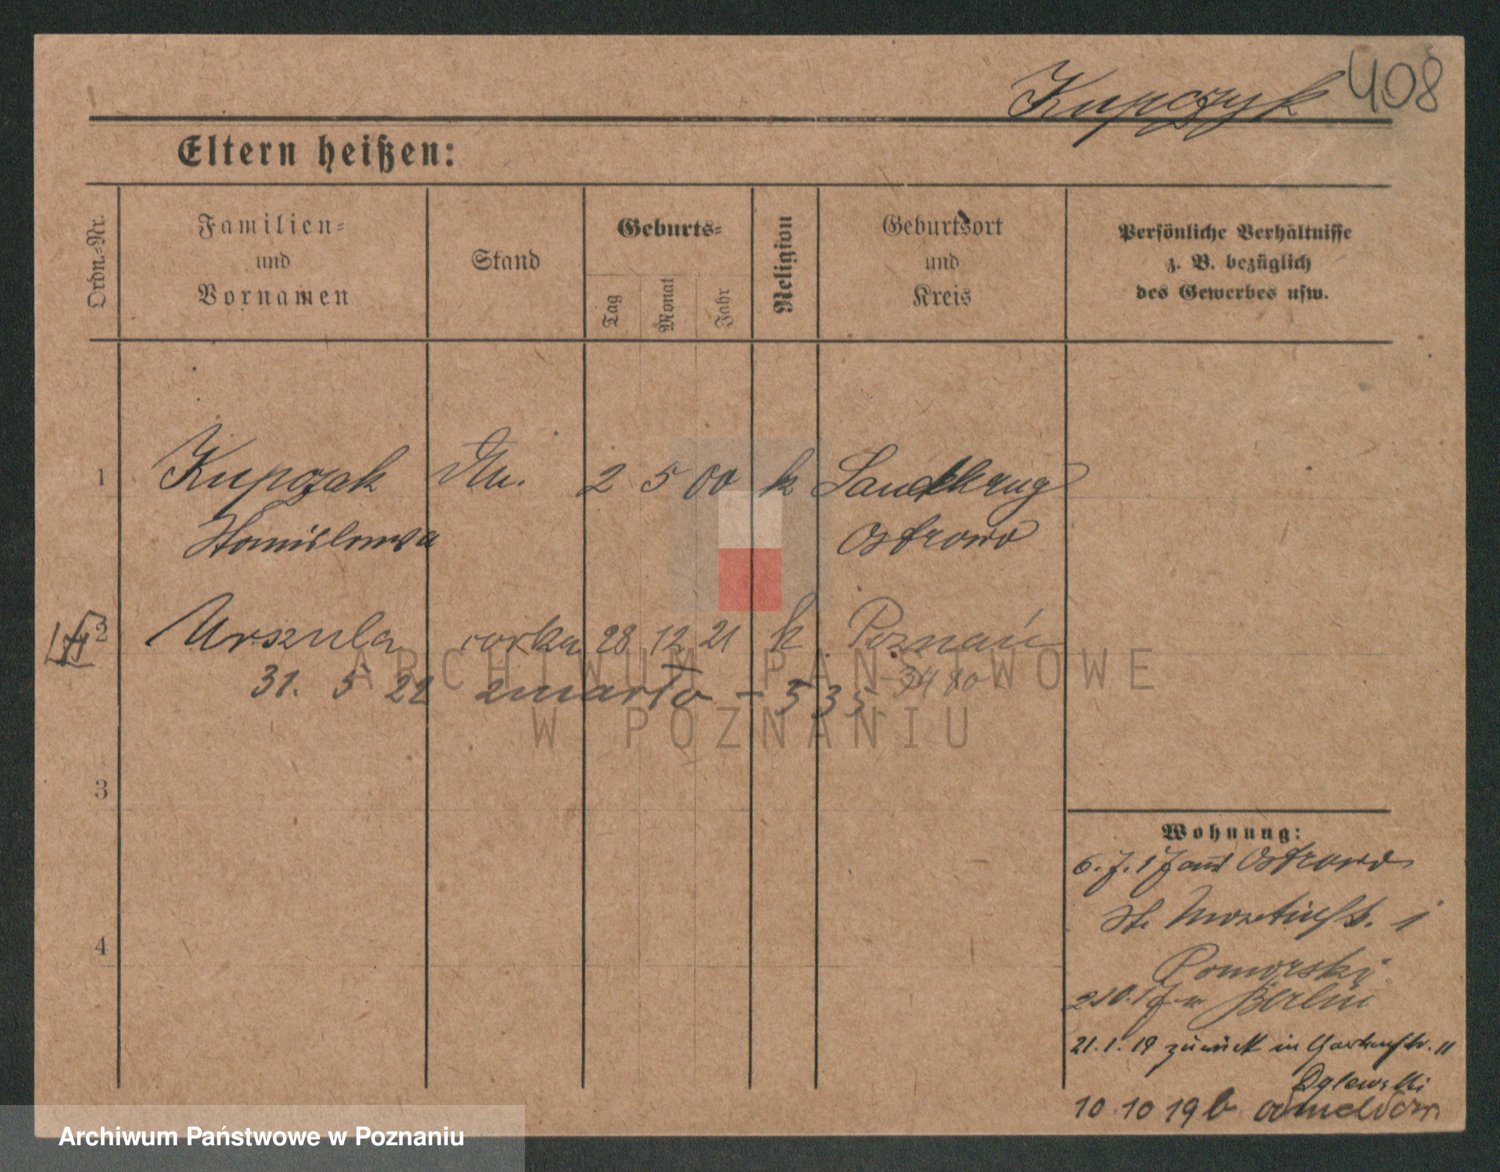 Kupczyk 408
Eltern heißen:
Ordn.-Nr.
Familien-
und
Vornamen
Stand
Geburts-
Tag
Monat
Jahr
Religion
Geburtsort
und
Kreis
Persönliche Verhältnisse
z. B. bezüglich
des Gewerbes usw.
1 Kupczak 2 5 00 k Sandkrug
Stanislawa Ostrowo
2 Urszula corka 28 12 21 k Poznań
31. 5 22 zmarła - 535
ARCHIWUM PAŃSTWOWE
W POZNANIU
3
4
Wohnung:
6. 7. 17 aus Ostrowo
St. Martinstr. 1
Pomorski
Berlin
21.1.19 zurück in Gartenstr. 11
10 10 19
Archiwum Państwowe w Poznaniu